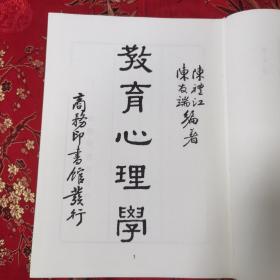 陳禮江
陳友端 編著
教育心理學
商務印書館發行
1